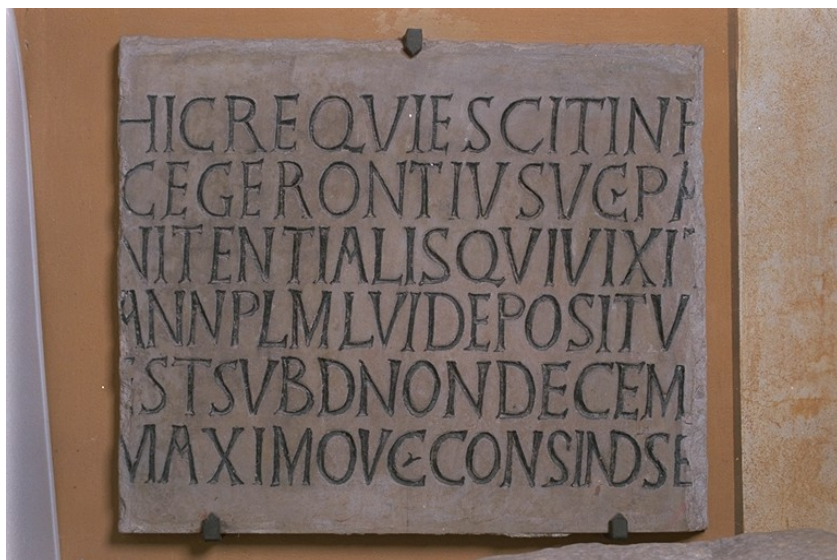 HICREQVIESCITINP
CEGERONTIVSVCPA
NITENTIALISQVIVIXIT
ANNPLMLVIDEPOSITV
ESTSVBDNONDECEM
MAXIMOVCCONSINDSE